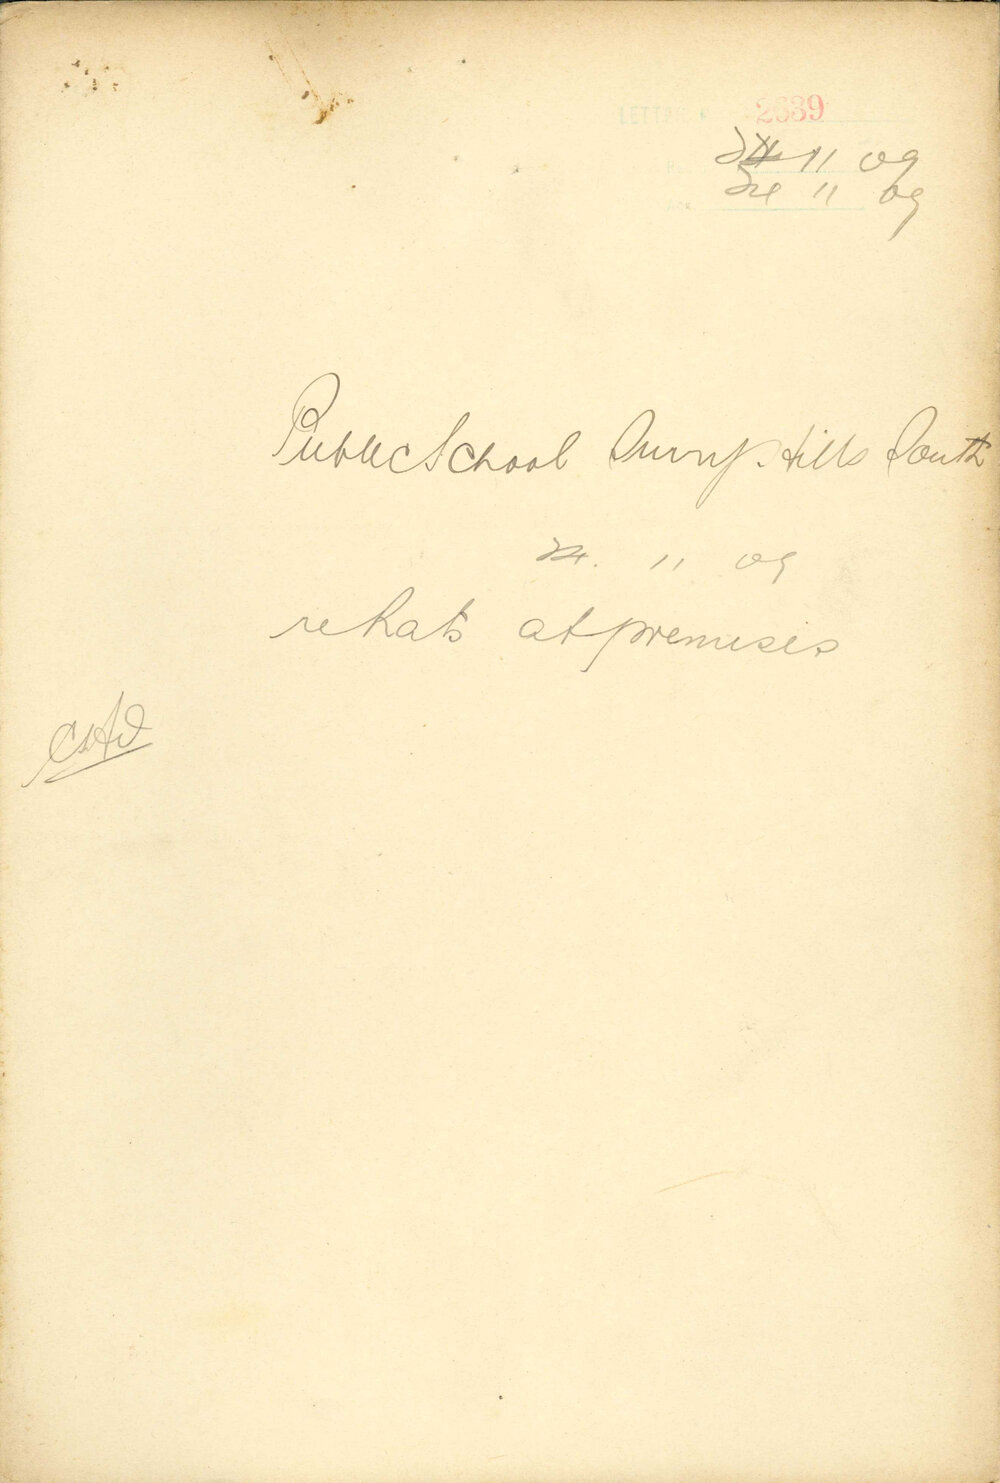 LETTER 2639
24 11 09
24 11 09
Public School Surry Hills South
24. 11 09
re Rats at premises